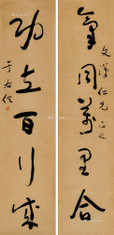 氣同萬里合
文漢仁兄正之
功立百行成
于右任